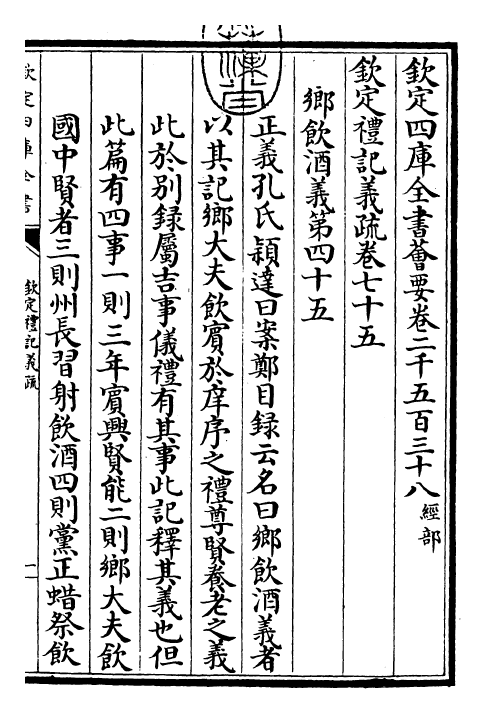 欽定四庫全書薈要卷二千五百三十八 經部
欽定禮記義疏卷七十五
鄉飲酒義第四十五
正義孔氏穎達曰案鄭目録云名曰鄉飲酒義者
以其記鄉大夫飲賓於庠序之禮尊賢養老之義
此於别録屬吉事儀禮有其事此記釋其義也但
此篇有四事一則三年賓興賢能二則鄉大夫飲
國中賢者三則州長習射飲酒四則黨正蜡祭飲
欽定四庫全書
欽定禮記義疏
一